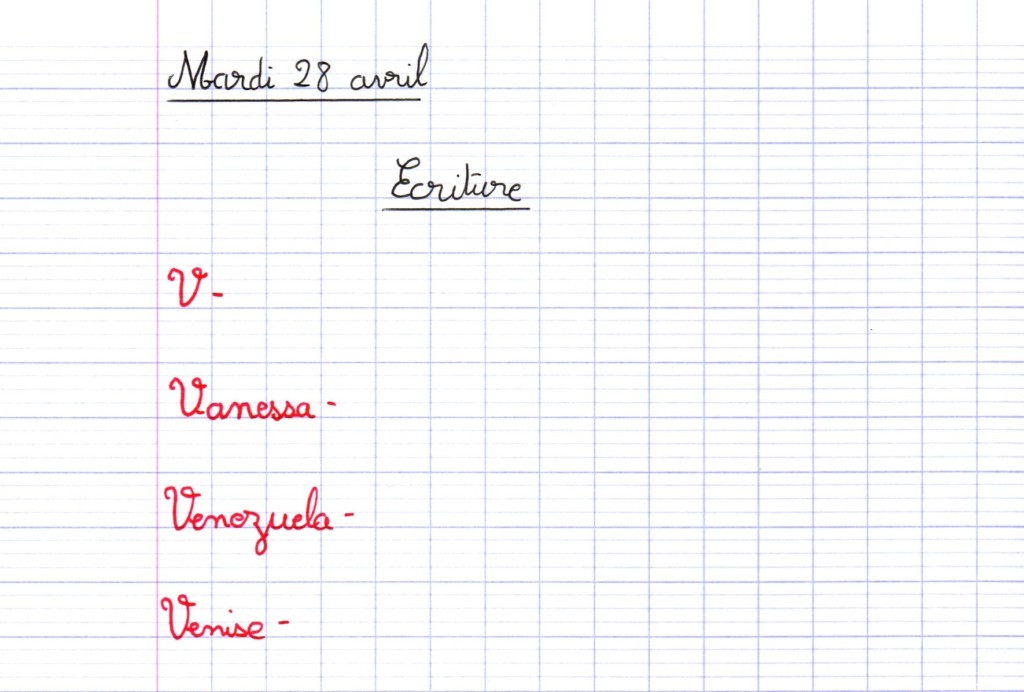 Mardi 28 avril
Ecriture
V-
Vanessa -
Venezuela -
Venise -